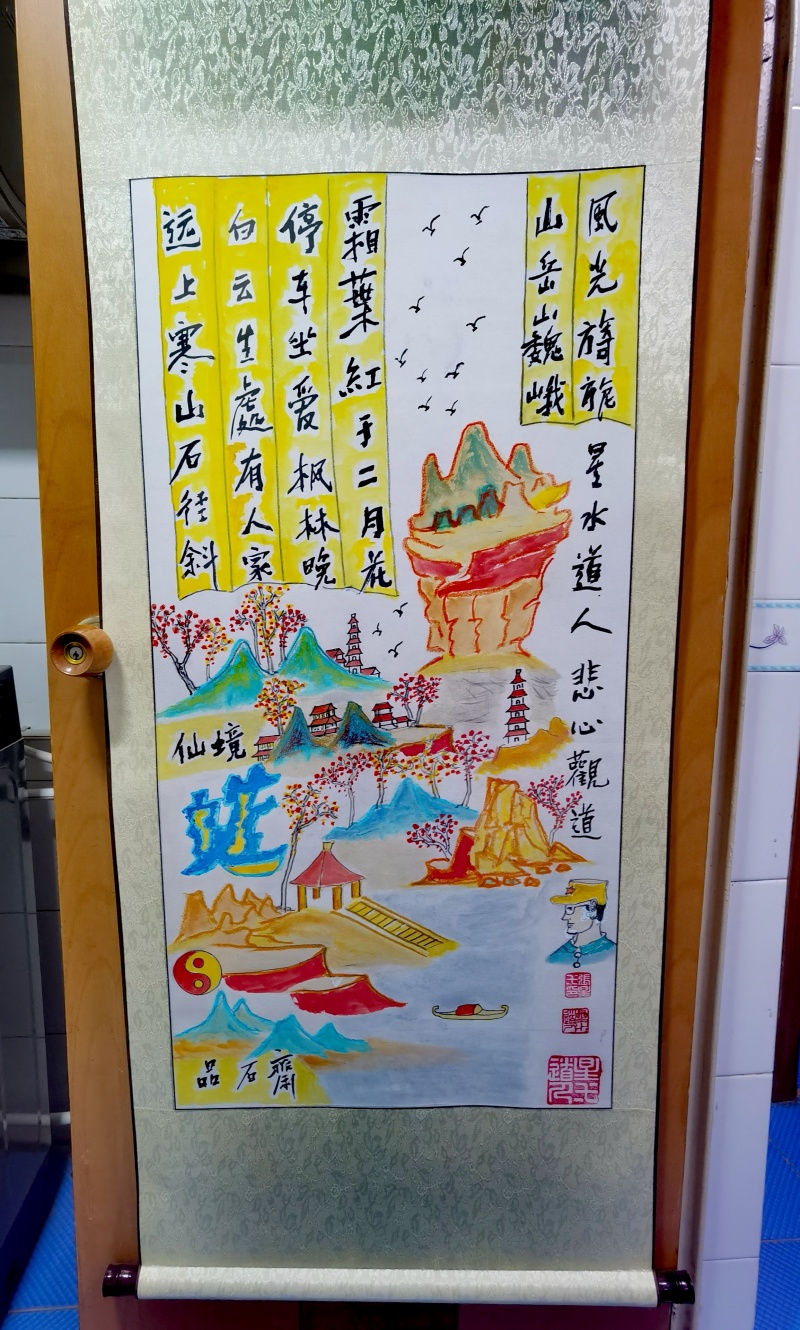 風光旖旎
山岳巍峨
远上寒山石径斜
白云生處有人家
停车坐爱枫林晚
霜葉紅于二月花
星水道人悲心觀道
仙境
品石齋